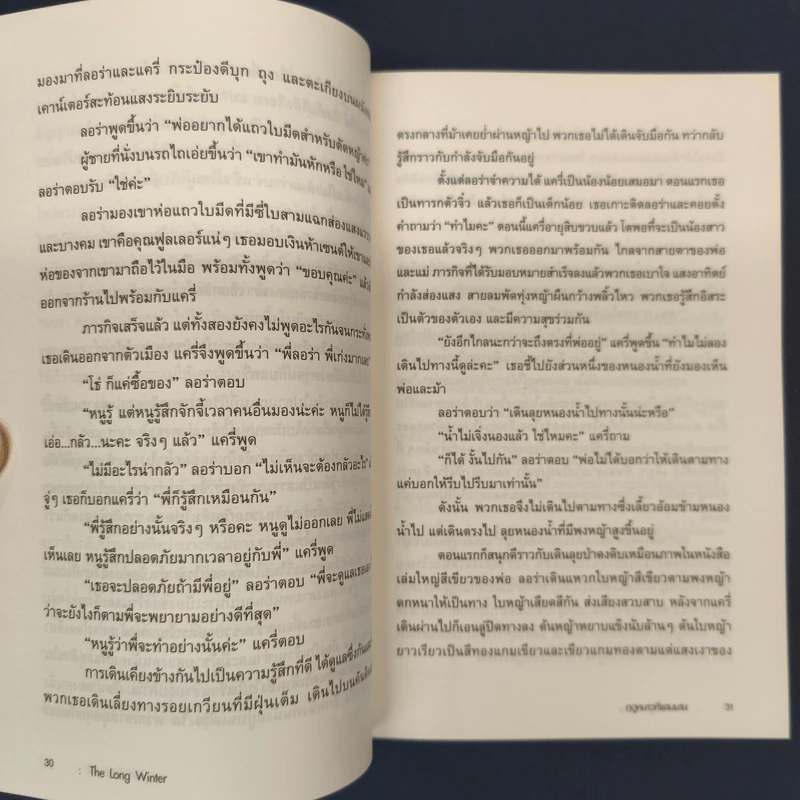 มองมาที่ลอร่าและแครี่ กระป๋องดีบุก ถุง และตะเกียงบนผนัง
เคาน์เตอร์สะท้อนแสงระยิบระยับ
ลอร่าพูดขึ้นว่า “พ่ออยากได้แถวใบมีดสำหรับตัดหญ้าค่ะ”
ผู้ชายที่นั่งบนรถไถเอ่ยขึ้นว่า “เขาทำมันหักหรือใช่ไหม”
ลอร่าตอบรับ “ใช่ค่ะ”
ลอร่ามองเขาห่อแถวใบมีดที่มีซี่ใบสามแฉกส่องแสงแวว
และบางคม เขาคือคุณฟูลเลอร์แน่ๆ เธอมอบเงินห้าเซนต์ให้เขาและ
ห่อของจากเขามาถือไว้ในมือ พร้อมทั้งพูดว่า “ขอบคุณค่ะ” แล้ว
ออกจากร้านไปพร้อมกับแครี่
ภารกิจเสร็จแล้ว แต่ทั้งสองยังคงไม่พูดอะไรกันจนกระทั่ง
เธอเดินออกจากตัวเมือง แครี่จึงพูดขึ้นว่า “พี่ลอร่า พี่เก่งมากเลย”
“โธ่ ก็แค่ซื้อของ” ลอร่าตอบ
“หนูรู้ แต่หนูรู้สึกจักจี้เวลาคนอื่นมองน่ะค่ะ หนูก็ไม่ได้รู้
เอ่อ...กลัว...นะคะ จริงๆ แล้ว” แครี่พูด
“ไม่มีอะไรน่ากลัว” ลอร่าบอก “ไม่เห็นจะต้องกลัวอะไร”
จู่ๆ เธอก็บอกแครี่ว่า “พี่ก็รู้สึกเหมือนกัน”
“พี่รู้สึกอย่างนั้นจริงๆ หรือคะ หนูดูไม่ออกเลย พี่ไม่แสดง
เห็นเลย หนูรู้สึกปลอดภัยมากเวลาอยู่กับพี่” แครี่พูด
“เธอจะปลอดภัยถ้ามีพี่อยู่” ลอร่าตอบ “พี่จะดูแลเธอ
ว่าจะยังไงก็ตามพี่จะพยายามอย่างดีที่สุด”
“หนูรู้ว่าพี่จะทำอย่างนั้นค่ะ” แครี่ตอบ
การเดินเคียงข้างกันไปเป็นความรู้สึกที่ดี ได้ดูแลซึ่งกัน
พวกเธอเดินเลี่ยงทางรอยเกวียนที่มีฝุ่นเต็ม เดินไปบนคัน
30 : The Long Winter
ตรงกลางที่ม้าเคยย่ำผ่านหญ้าไป พวกเธอไม่ได้เดินจับมือกัน ทว่ากลับ
รู้สึกราวกับกำลังจับมือกันอยู่
ตั้งแต่ลอร่าจำความได้ แครี่เป็นน้องน้อยเสมอมา ตอนแรกเธอ
เป็นทารกตัวจิ๋ว แล้วเธอก็เป็นเด็กน้อย เธอเกาะติดลอร่าและคอยตั้ง
คำถามว่า “ทำไมคะ” ตอนนี้แครี่อายุสิบขวบแล้ว โตพอที่จะเป็นน้องสาว
ของเธอแล้วจริงๆ พวกเธอออกมาพร้อมกัน ไกลจากสายตาของพ่อ
และแม่ ภารกิจที่ได้รับมอบหมายสำเร็จลงแล้วพวกเธอเบาใจ แสงอาทิตย์
กำลังส่องแสง สายลมพัดทุ่งหญ้าผืนกว้างพลิ้วไหว พวกเธอรู้สึกอิสระ
เป็นตัวของตัวเอง และมีความสุขร่วมกัน
“ยังอีกไกลนะกว่าจะถึงตรงที่พ่ออยู่” แครี่พูดขึ้น “ทำไมไม่ลอง
เดินไปทางนี้ดูล่ะคะ” เธอชี้ไปยังส่วนหนึ่งของหนองน้ำที่ยังมองเห็น
พ่อและม้า
ลอร่าตอบว่า “เดินลุยหนองน้ำไปทางนั้นน่ะหรือ”
“น้ำไม่เจิ่งนองแล้ว ใช่ไหมคะ” แครี่ถาม
“ก็ได้ งั้นไปกัน” ลอร่าตอบ “พ่อไม่ได้บอกว่าให้เดินตามทาง
แค่บอกให้รีบไปรีบมาเท่านั้น”
ดังนั้น พวกเธอจึงไม่เดินไปตามทางซึ่งเลี้ยวอ้อมข้ามหนอง
น้ำไป แต่เดินตรงไป ลุยหนองน้ำที่มีพงหญ้าสูงขึ้นอยู่
ตอนแรกก็สนุกดีราวกับเดินลุยป่าดงดิบเหมือนภาพในหนังสือ
เล่มใหญ่สีเขียวของพ่อ ลอร่าเดินแหวกใบหญ้าสีเขียวตามพงหญ้า
ดกหนาให้เป็นทาง ใบหญ้าเสียดสีกัน ส่งเสียงสวบสาบ หลังจากแครี่
เดินผ่านไปก็เอนลู่ปิดทางลง ต้นหญ้าหยาบแข็งนับล้านๆ ต้นใบหญ้า
ยาวเรียวเป็นสีทองแกมเขียวและเขียวแกมทองตามแต่แสงเงาของ
ฤดูหนาวที่แสนนาน 31